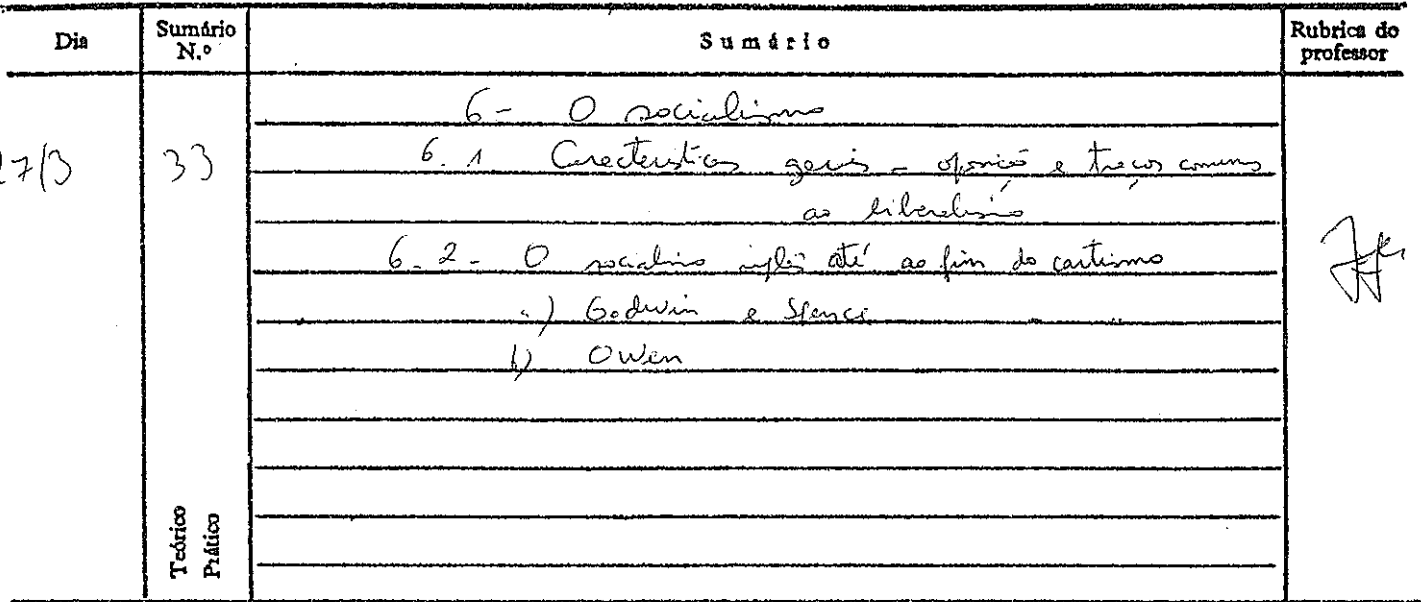 Dia
Sumário N.º
Sumário
Rubrica do professor
27/3
33
6 - O socialismo
6.1 Características gerais - oposição e traços comuns
ao liberalismo
6.2 - O socialismo inglês até ao fim do cartismo
a) Godwin e Spence
b) Owen
Teórico
Prático